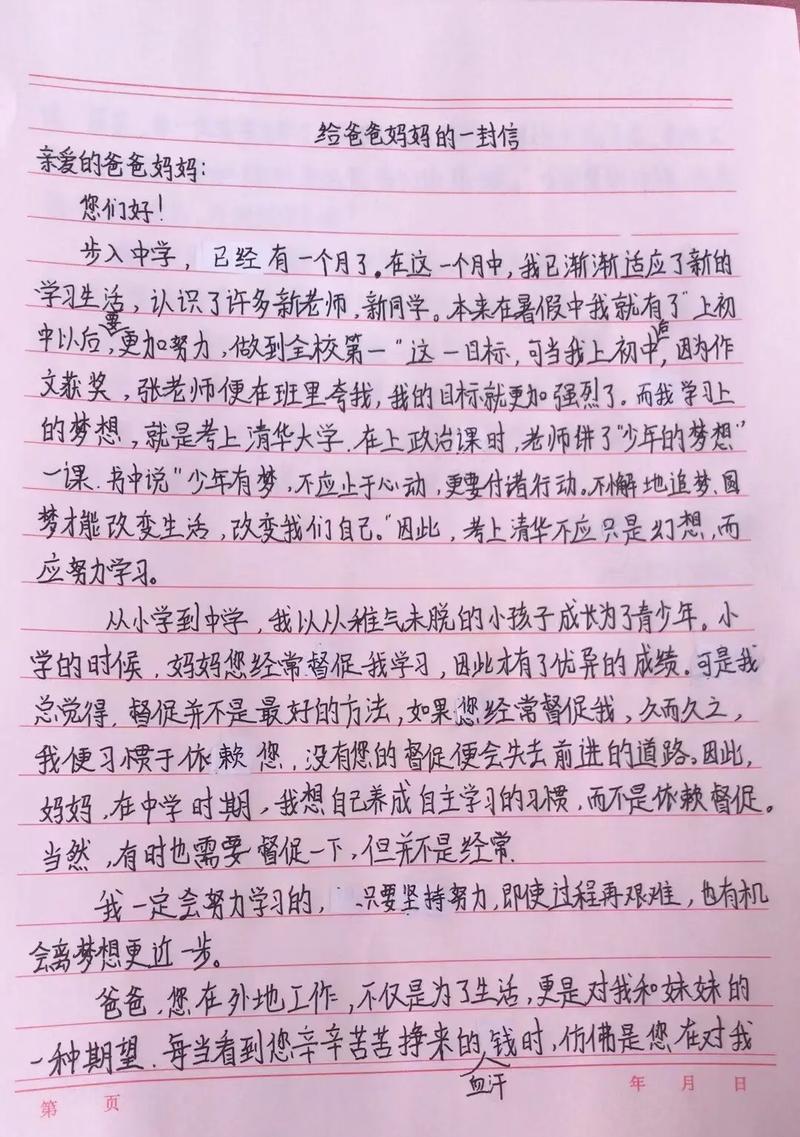 给爸爸妈妈的一封信
亲爱的爸爸妈妈：
您们好！
步入中学，已经有一个月了。在这一个月中，我已渐渐适应了新的
学习生活，认识了许多新老师，新同学。本来在暑假中我就有了“上初
中以后，要更加努力，做到全校第一”这一目标，可当我上初中后，因为作
文获奖，张老师便在班里夸我，我的目标就更加强烈了。而我学习上
的梦想，就是考上清华大学.在上政治课时，老师讲了“少年的梦想”
一课.书中说“少年有梦，不应止于心动，更要付诸行动。不懈地追梦、圆
梦才能改变生活，改变我们自己。”因此，考上清华不应只是幻想，而
应努力学习。
从小学到中学，我以从稚气未脱的小孩子成长为了青少年。小
学的时候，妈妈您经常督促我学习，因此才有了优异的成绩。可是我
总觉得，督促并不是最好的方法，如果您经常督促我，久而久之，
我便习惯于依赖您，没有您的督促便会失去前进的道路。因此，
妈妈，在中学时期，我想自己养成自主学习的习惯，而不是依赖督促。
当然，有时也需要督促一下，但并不是经常.
我一定会努力学习的，只要坚持努力，即使过程再艰难，也有机
会离梦想更近一步。
爸爸，您在外地工作，不仅是为了生活，更是对我和妹妹的
一种期望.每当看到您辛辛苦苦挣来的血汗钱时，仿佛是您在对我
第 页 年 月 日